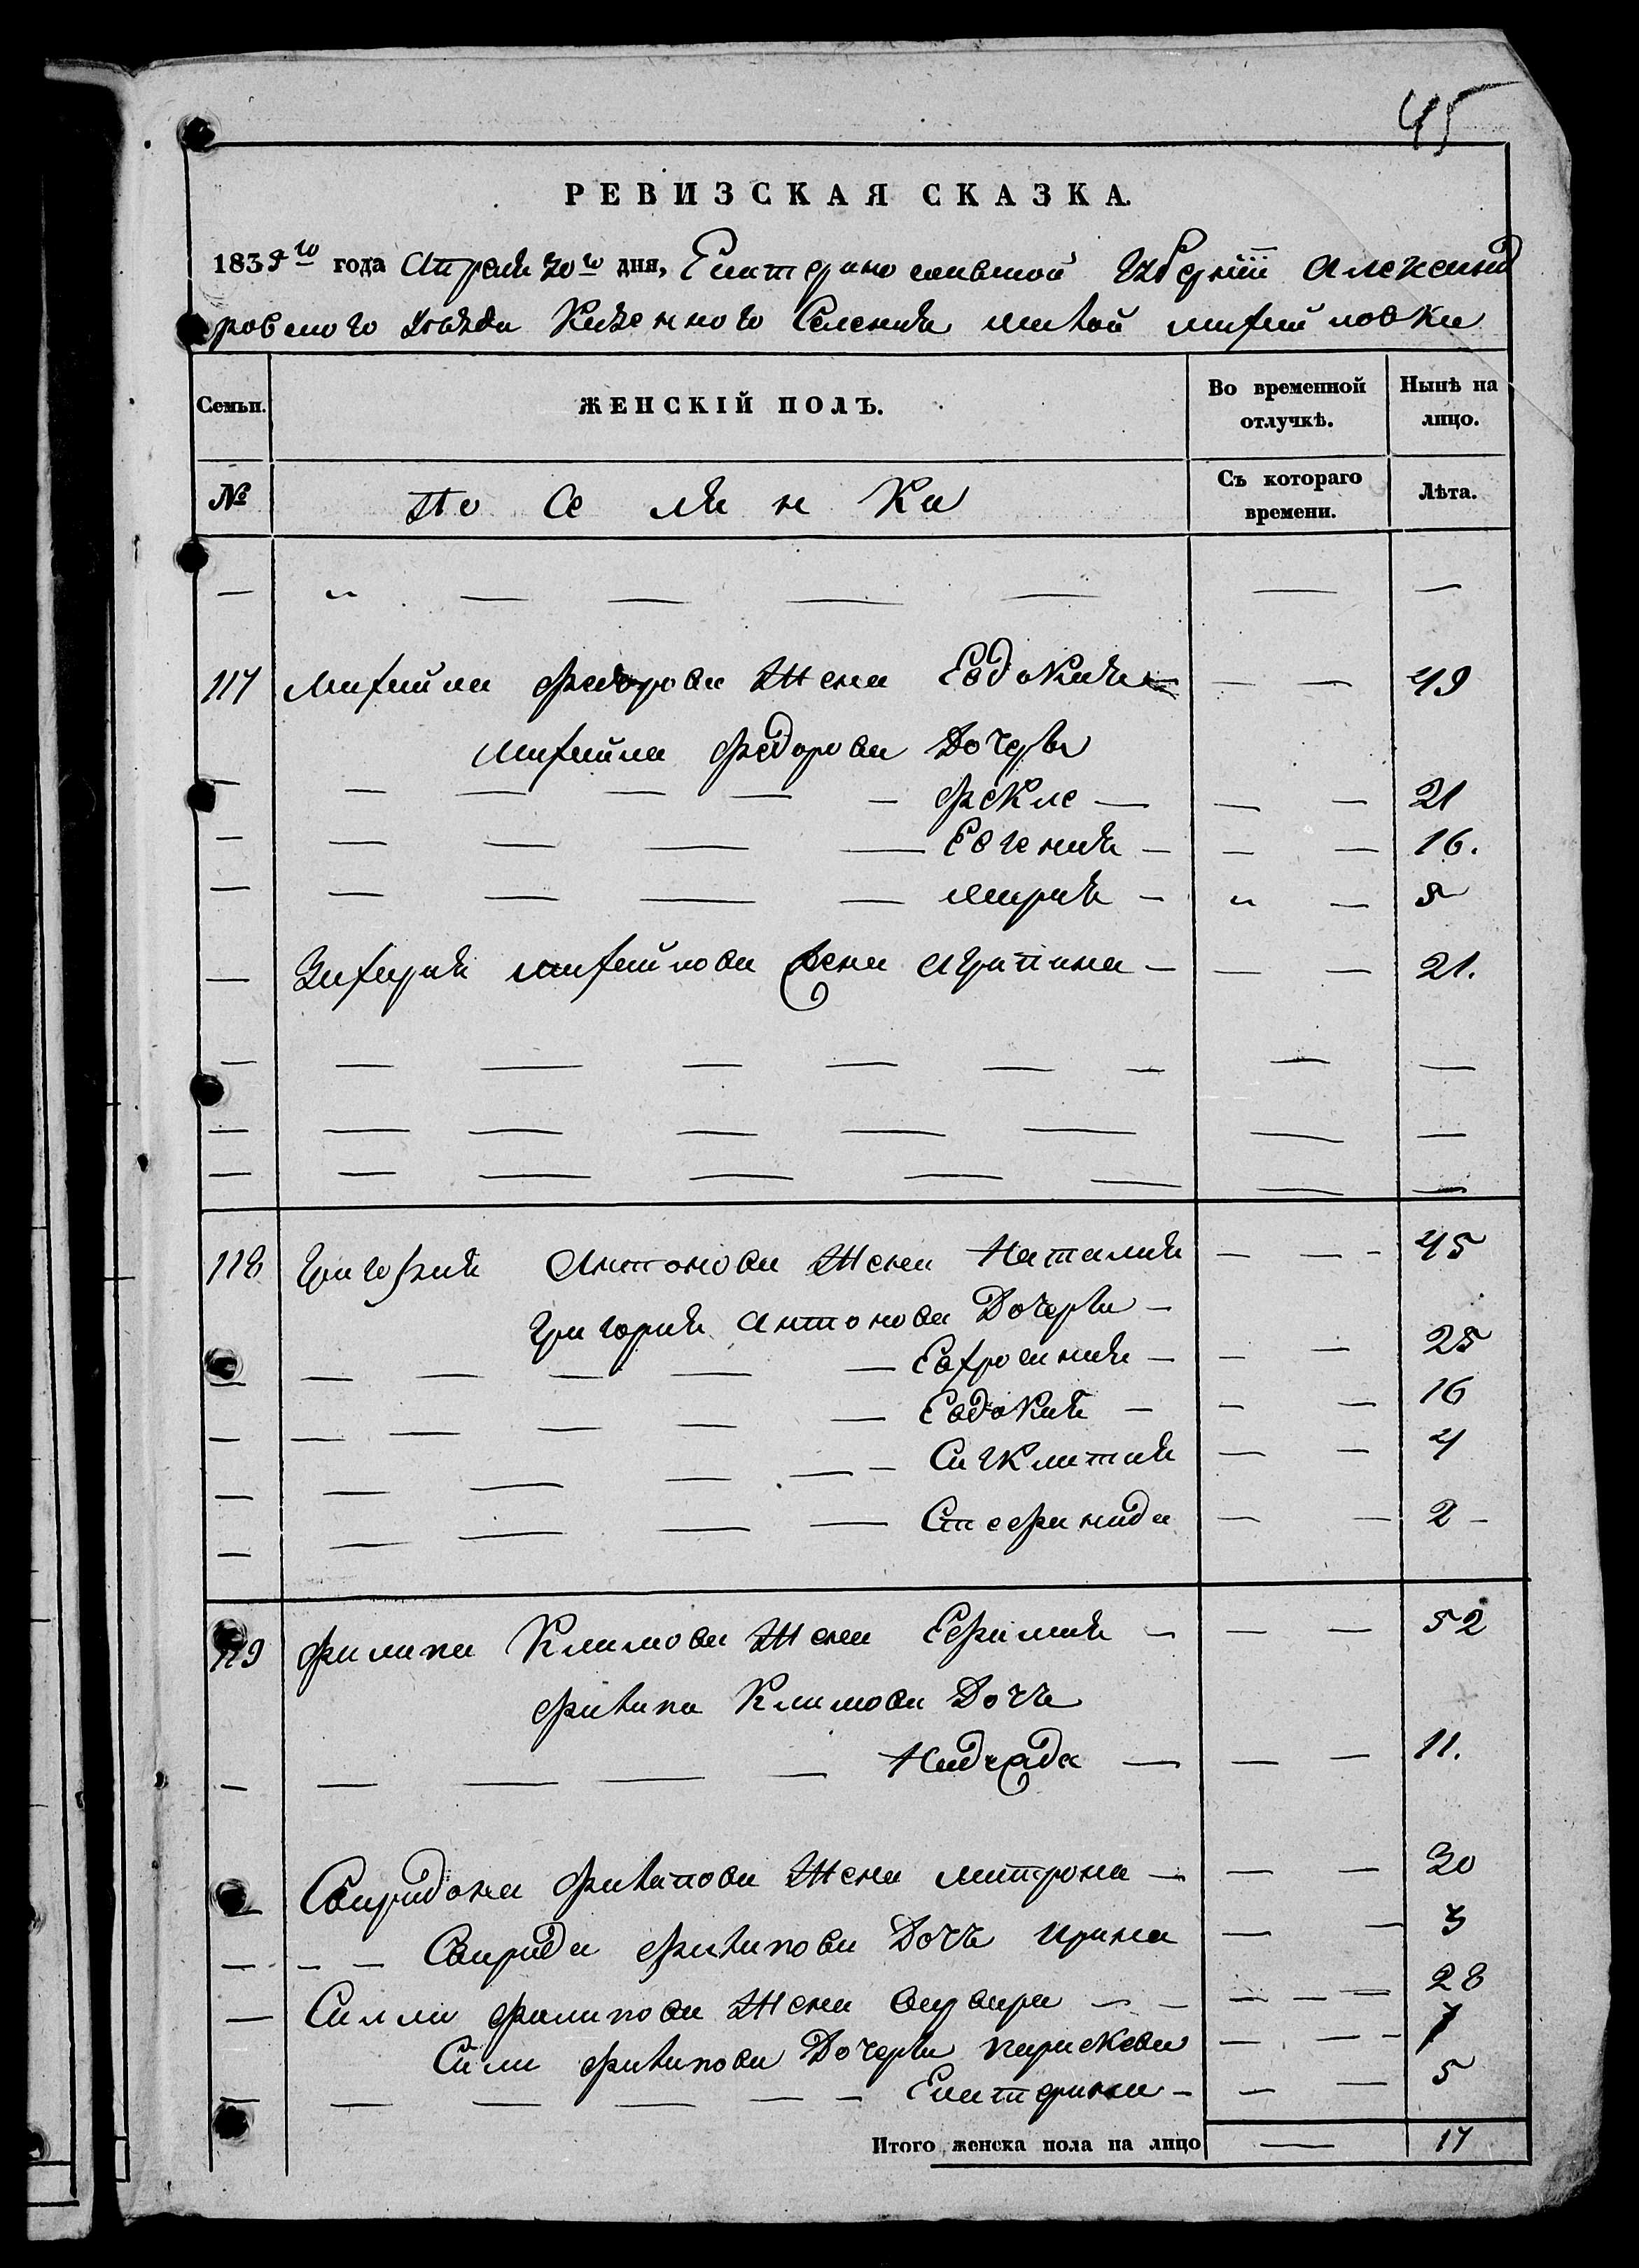 45
РЕВИЗСКАЯ СКАЗКА.
183 го года Апреля 20го дня, Екатеринославской Губернии Александ
ровского уезда Казенного Селения малой михайловки
Семьи. ЖЕНСКІЙ ПОЛЪ. Во временной отлучкѣ. Нынѣ на лицо.
№ По Се ля н Ка Съ котораго времени. Лѣта.
117 михайла федорова Жена Евдокия 49
михайла федорова Дочеры
фекла 21
Евгения 16.
мария
Захария михайлова жена агрипина 21.
118 Григория Антонова Жена Наталия 45
Григория антонова Дочеры
Евфросиния 25
Евдокия 16
Сигклития 4
Стефанида 2
119 филипа Климова Жена Ефимия 52
филипа Климова Дочь
Надежда 11.
Свиридона филипова Жена матрона 30
Свирида филипова Дочь ирина 3
Силли филипова Жена варвара 28
Сили филипова Дочеры параскева 7
Екатерина 5
Итого женска пола на лицо 17